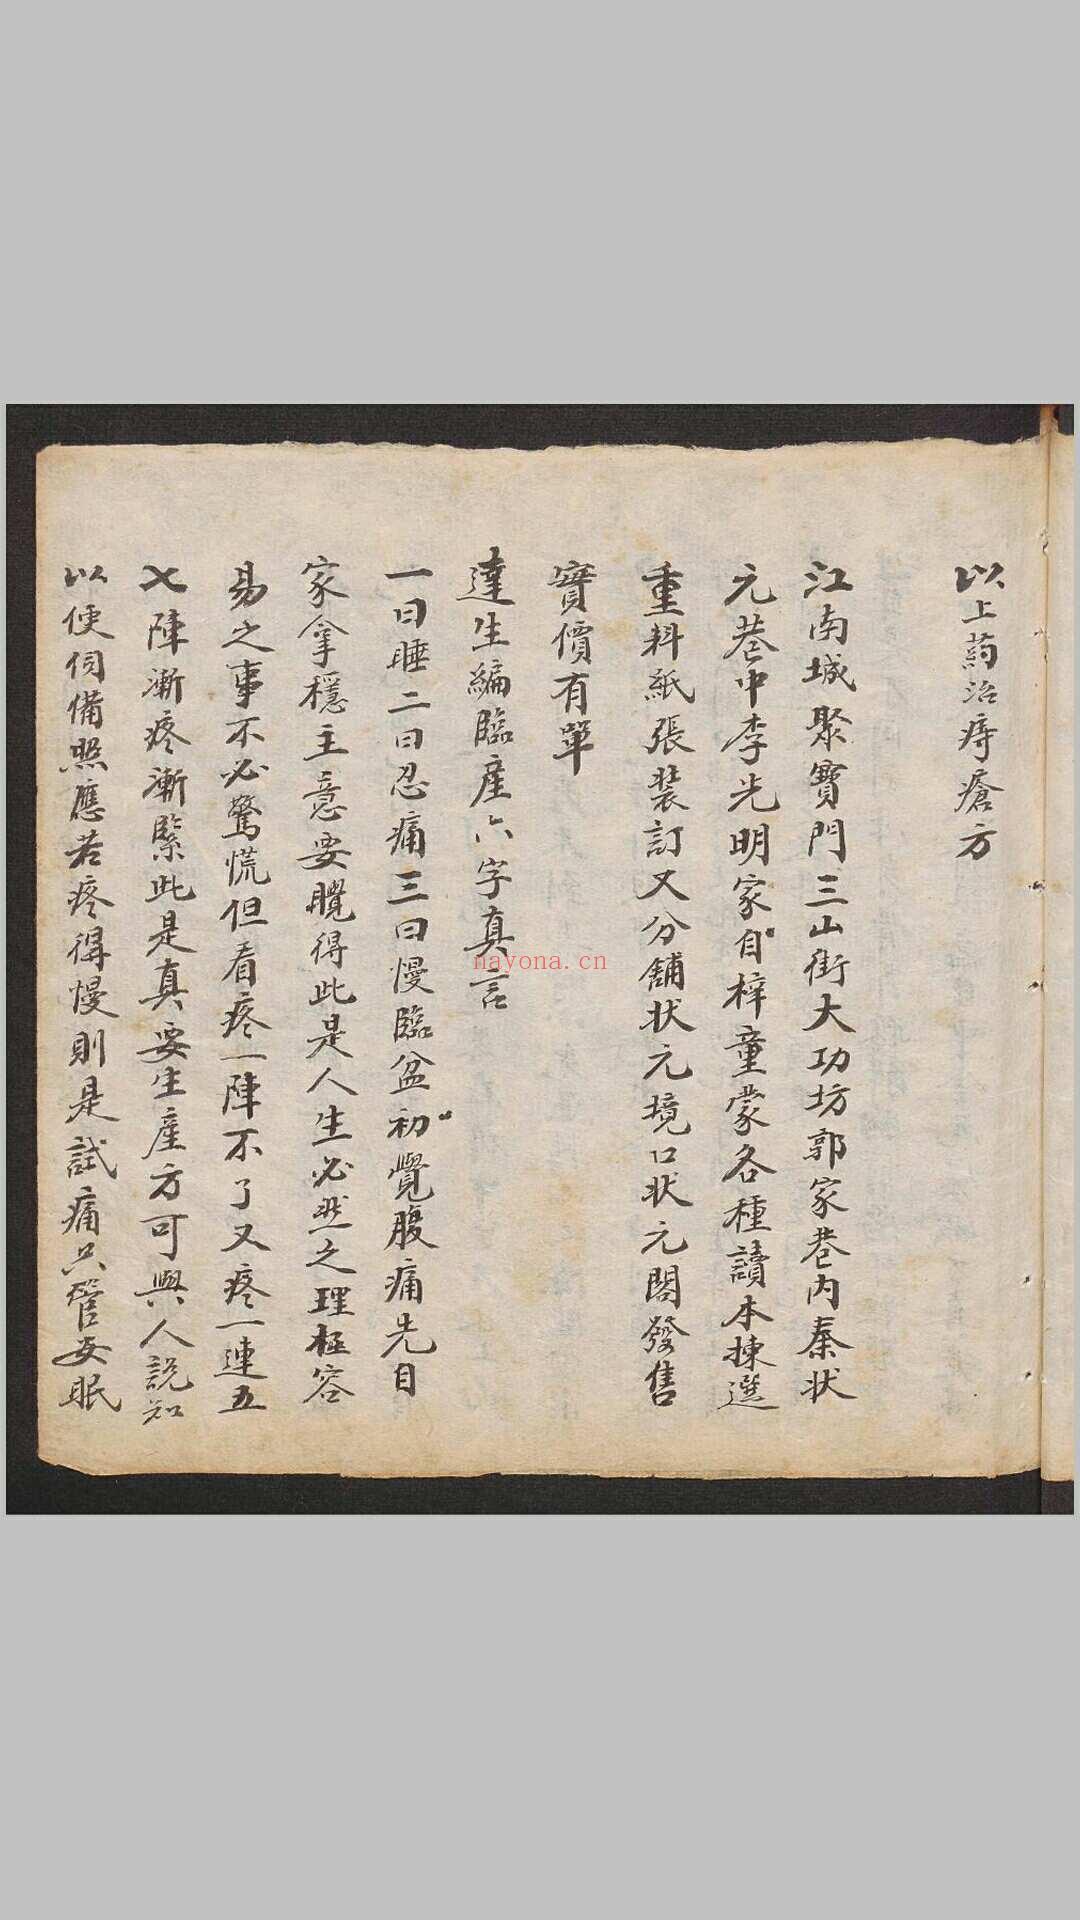 以上药治痔瘡方
江南城聚寶門三山街大功坊郭家巷内秦状
元巷中李光明家自梓童蒙各種讀本揀選
重料紙張裝訂又分舖状元境口状元閣發售
實價有單
達生編臨産六字真言
一曰睡二曰忍痛三曰慢臨盆初覺腹痛先自
家拿穩主意要曉得此是人生必然之理極容
易之事不必驚慌但看疼一陣不了又疼一連五
七陣漸疼漸緊此是真要生産方可與人説知
以便伺備照應若疼得慢則是試痛只管安眠
nayona.cn